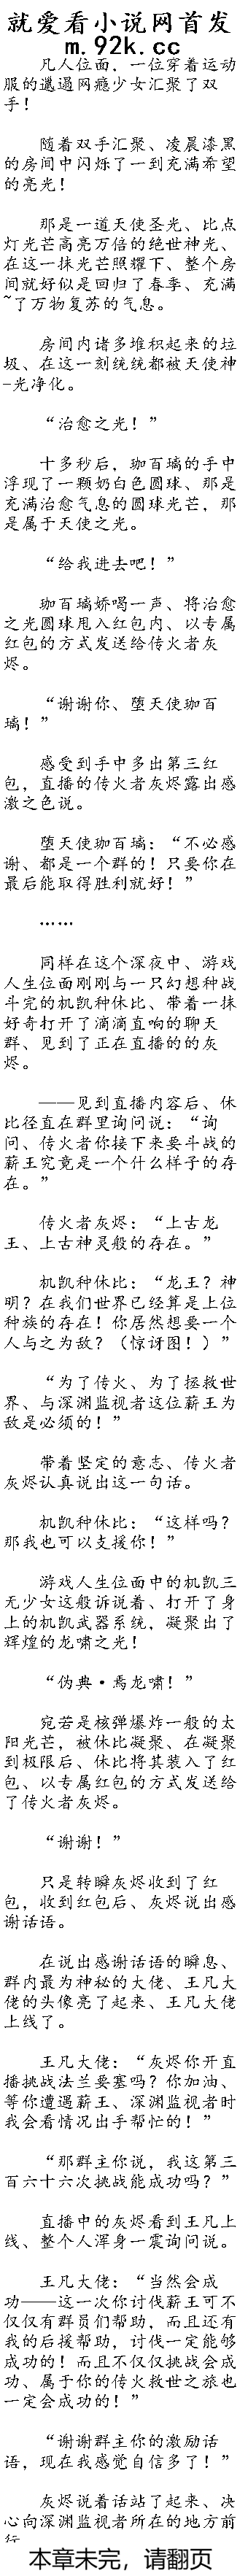 就爱看小说网首发
m.92k.cc
凡人位面，一位穿着运动
服的邋遢网瘾少女汇聚了双
手！
随着双手汇聚、凌晨漆黑
的房间中闪烁了一到充满希望
的亮光！
那是一道天使圣光、比点
灯光芒高亮万倍的绝世神光、
在这一抹光芒照耀下、整个房
间就好似是回归了春季、充满
~了万物复苏的气息。
房间内诸多堆积起来的垃
圾、在这一刻统统都被天使神
-光净化。
“治愈之光！”
十多秒后，珈百璃的手中
浮现了一颗奶白色圆球、那是
充满治愈气息的圆球光芒，那
是属于天使之光。
“给我进去吧！”
珈百璃娇喝一声、将治愈
之光圆球甩入红包内、以专属
红包的方式发送给传火者灰
烬。
“谢谢你、堕天使珈百
璃！”
感受到手中多出第三红
包，直播的传火者灰烬露出感
激之色说。
堕天使珈百璃：“不必感
谢、都是一个群的！只要你在
最后能取得胜利就好！”
……
同样在这个深夜中、游戏
人生位面刚刚与一只幻想种战
斗完的机凯种休比、带着一抹
好奇打开了滴滴直响的聊天
群、见到了正在直播的的灰
烬。
——见到直播内容后、休
比径直在群里询问说：“询
问、传火者你接下来要斗战的
薪王究竟是一个什么样子的存
在。”
传火者灰烬：“上古龙
王、上古神灵般的存在。”
机凯种休比：“龙王？神
明？在我们世界已经算是上位
种族的存在！你居然想要一个
人与之为敌？（惊讶图！）”
“为了传火、为了拯救世
界、与深渊监视者这位薪王为
敌是必须的！”
带着坚定的意志、传火者
灰烬认真说出这一句话。
机凯种休比：“这样吗？
那我也可以支援你！”
游戏人生位面中的机凯三
无少女这般诉说着、打开了身
上的机凯武器系统，凝聚出了
辉煌的龙啸之光！
“伪典·焉龙啸！”
宛若是核弹爆炸一般的太
阳光芒，被休比凝聚、在凝聚
到极限后、休比将其装入了红
包、以专属红包的方式发送给
了传火者灰烬。
“谢谢！”
只是转瞬灰烬收到了红
包，收到红包后、灰烬说出感
谢话语。
在说出感谢话语的瞬息、
群内最为神秘的大佬、王凡大
佬的头像亮了起来、王凡大佬
上线了。
王凡大佬：“灰烬你开直
播挑战法兰要塞吗？你加油、
等你遭遇薪王、深渊监视者时
我会看情况出手帮忙的！”
“那群主你说，我这第三
百六十六次挑战能成功吗？”
直播中的灰烬看到王凡上
线、整个人浑身一震询问说。
王凡大佬：“当然会成
功——这一次你讨伐薪王可不
仅仅有群员们帮助，而且还有
我的后援帮助，讨伐一定能够
成功的！而且不仅仅挑战会成
功、属于你的传火救世之旅也
一定会成功的！”
“谢谢群主你的激励话
语，现在我感觉自信多了！”
灰烬说着话站了起来、决
心向深渊监视者所在的地方前
行
本章未完，请翻页